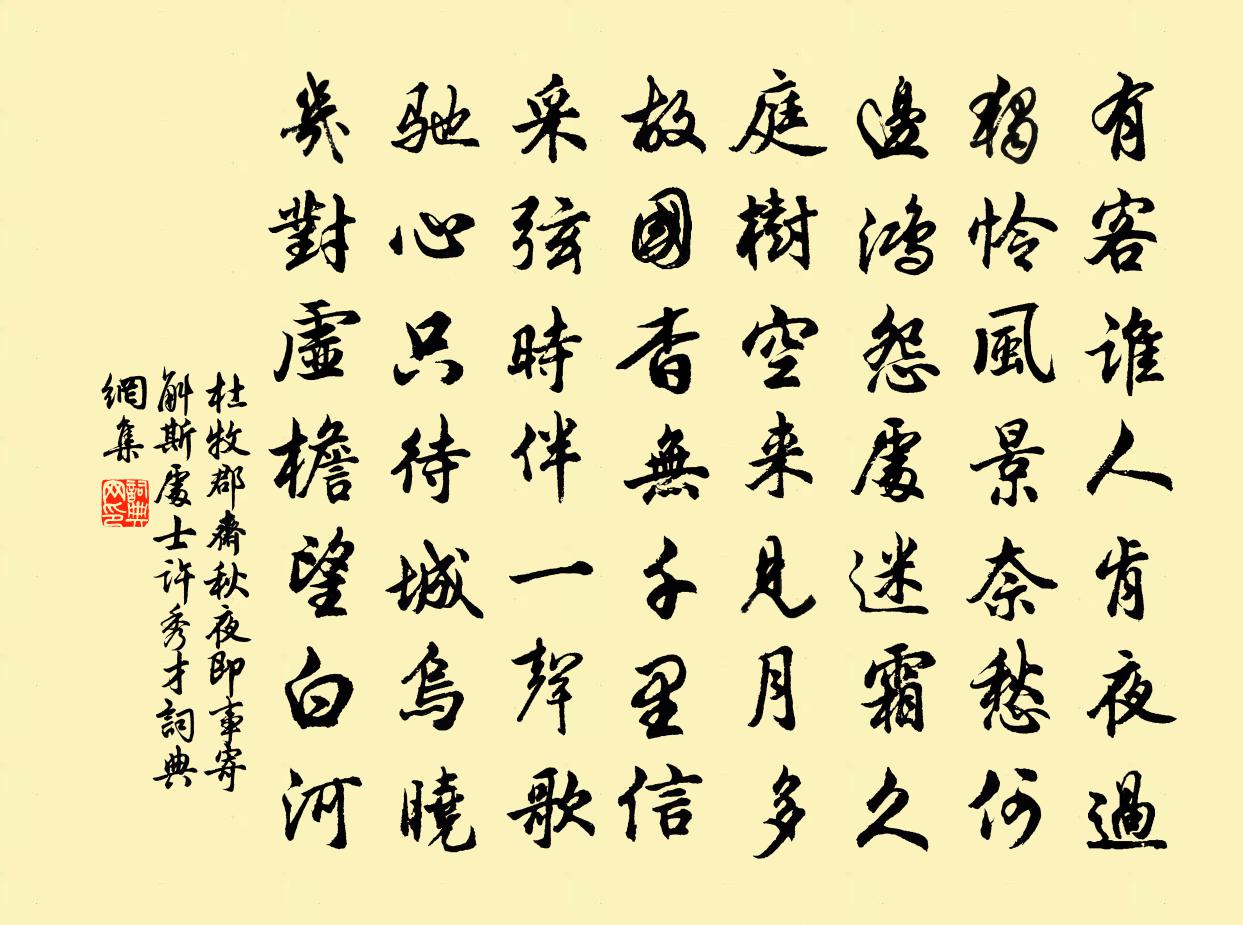 有客誰人肯夜過
獨憐風景奈愁何
邊鴻怨處迷霜久
庭樹空来見月多
故國杳無千里信
采弦時伴一聲歌
馳心只待城烏曉
幾對虛檐望白河
杜牧郡齋秋夜即事寄
斛斯處士許秀才詞典
網集
詞典網印